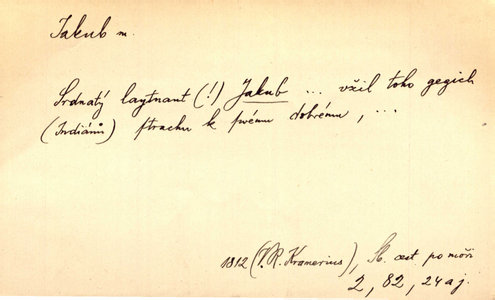 Jakub m.
Srdnatý laytnant (!) Jakub ... vžil toho gegich
(Indiánů) ſtrachu k swému dobrému, ...
1812 (V. R. Kramerius), Sb. cest po moři
2, 82, 24 aj.